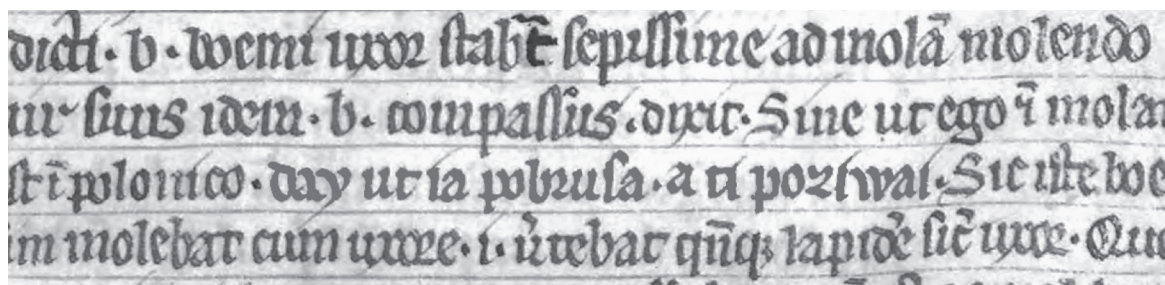 dicti · b · boemi uxor stabat̄ sepissime ad molā molendo
uir suus idem · b · compassus · dixit · Sine ut ego ī molam
st ī polonico · day ut ia pobrusa · a ti poziwai · Sic iste boe
im molebat cum uxore · i · ūtebat qn̄q; lapidē sic̄ uxor · Que